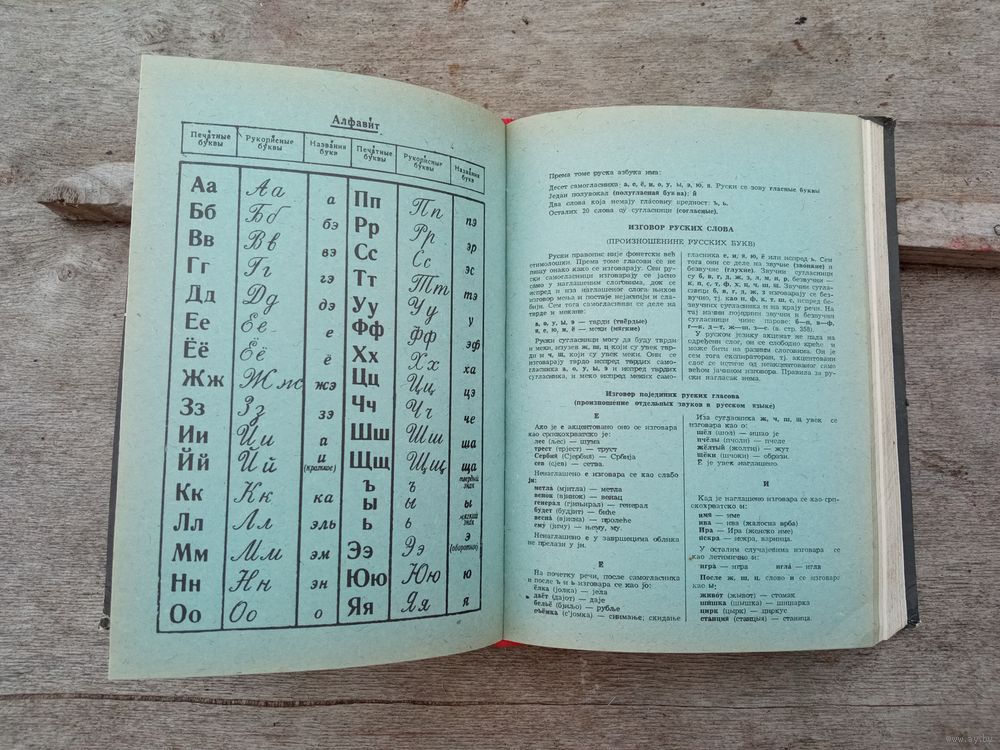 Алфави́т
Печа́тные бу́квы Рукопи́сные бу́квы Назва́ния букв Печа́тные бу́квы Рукопи́сные бу́квы Назва́ния букв
Аа Аа а Пп Пп пэ
Бб Бб бэ Рр Рр эр
Вв Вв вэ Сс Сс эс
Гг Гг гэ Тт Тт тэ
Дд Дд дэ Уу Уу у
Ее Ее е Фф Фф эф
Ёё Ёё ё Хх Хх ха
Жж Жж жэ Цц Цц цэ
Зз Зз зэ Чч Чч че
Ии Ии а Шш Шш ша
Йй Йй и (краткое) Щщ Щщ ща
Кк Кк ка Ъ ъ твёрдый знак
Лл Лл эль Ы ы ы
Мм Мм эм Ь ь мягкий знак
Нн Нн эн Ээ Ээ э (оборотное)
Оо Оо о Юю Юю ю
Яя Яя я
Према томе руска азбука има:
Десет самогласника: а, е, ё, и, о, у, ы, э, ю, я. Руски се зову гласные буквы
Један полувокал (полугласная буква): й
Два слова која немају гласовну вредност: ъ, ь.
Осталих 20 слова су сугласници (согласные).
ИЗГОВОР РУСКИХ СЛОВА
(ПРОИЗНОШЕНИНЕ РУССКИХ БУКВ)
Руски правопис није фонетски већ
етимолошки. Према томе гласови се не
пишу онако како се изговарају. Сви ру-
ски самогласници изговарају се јасно
само у наглашеном слогоима, док се
испред и иза наглашеног слога њихов
изговор мења и постаје нејаснији и сла-
бији. Сем тога самогласници се деле на
тврде и мекане:
а, о, у, ы, э — тврди (твёрдые)
я, е, ю, и, ё — меки (мягкие)
Руски сугласници могу да буду тврди
и меки, изузев ж, ш, ц који су увек твр-
ди и ч, щ, који су увек меки. Они се
изговарају тврдо испред тврдих само-
гласника а, о, у, ы, э и испред тврдих
сугласника, и меко испред меких само-
гласника е, и, я, ю, ё или испред ь. Сем
тога они се деле на звучне (звонкие) и
безвучне (глухие). Звучни сугласници
су б, в, г, д, ж, з, л, м, н, р, безвучни —
к, п, с, т, ф, х, ц, ч, ш, щ. Звучни сугла-
сници б, в, г, д, ж, з изговарају се без-
вучно, тј. као п, ф, к, т, ш, с, испред без-
вучних сугласника и на крају речи. На
тај начин поједини звучни и безвучни
сугласници чине парове: б—п, в—ф,
г—к, д—т, ж—ш, з—с. (в. стр. 358).
У руском језику акценат не пада на
одређени слог, он се слободно креће и
може бити на разним слоговима. Он је
сем тога експираторан, тј. акцентовани
слог се истиче од неакцентованог само
већом јачином изговора. Правила за ру-
ски нагласак нема.
Изговор појединих руских гласова
(произношение отдельных звуков в русском языке)
Е
Ако је е акцентовано оно се изговара
као српскохрватско је:
лес (љес) — шума
трест (трјест) — труст
Се́рбия (Сјербия) — Србија
сев (сјев) — сетва.
Ненаглашено е изговара се као слабо
ји:
метла́ (мјитла) — метла
вено́к (вјинок) — венац
генера́л (гјињирал) — генерал
бу́дет (будјит) — биће
весна́ (вјисна) — пролеће
ему́ (јиму) — њему, му.
Ненаглашено е у завршецима облика
не прелази у ји.
Ё
На почетку речи, после самогласника
и после ъ и ь изговара се као јо:
ёлка (јолка) — јела
даёт (дајот) — даје
бельё (бриљо) — рубље
съёмка (с'јомка) — снимање; скидање
Иза сугласника ж, ч, щ, ш увек се
изговара као о:
шёл (шол) — ишао је
пчёлы (пчоли) — пчеле
жёлтый (жолтиј) — жут
щёки (шчоки) — образи.
Ё је увек наглашено.
И
Кад је наглашено изговара се као срп-
скохрватско и:
и́мя — име
и́ва — ива (жалосна врба)
И́ра — Ира (женско име)
и́скра — искра, варница.
У осталим случајевима изговара се
као летимично и:
игра́ — игра игла́ — игла
После ж, ш, ц, слово и се изговара
као ы:
живо́т (жывот) — стомак
ши́шка (шышка) — шишарка
цирк (цырк) — циркус
ста́нция (станцыя) — станица.
www.ay.by